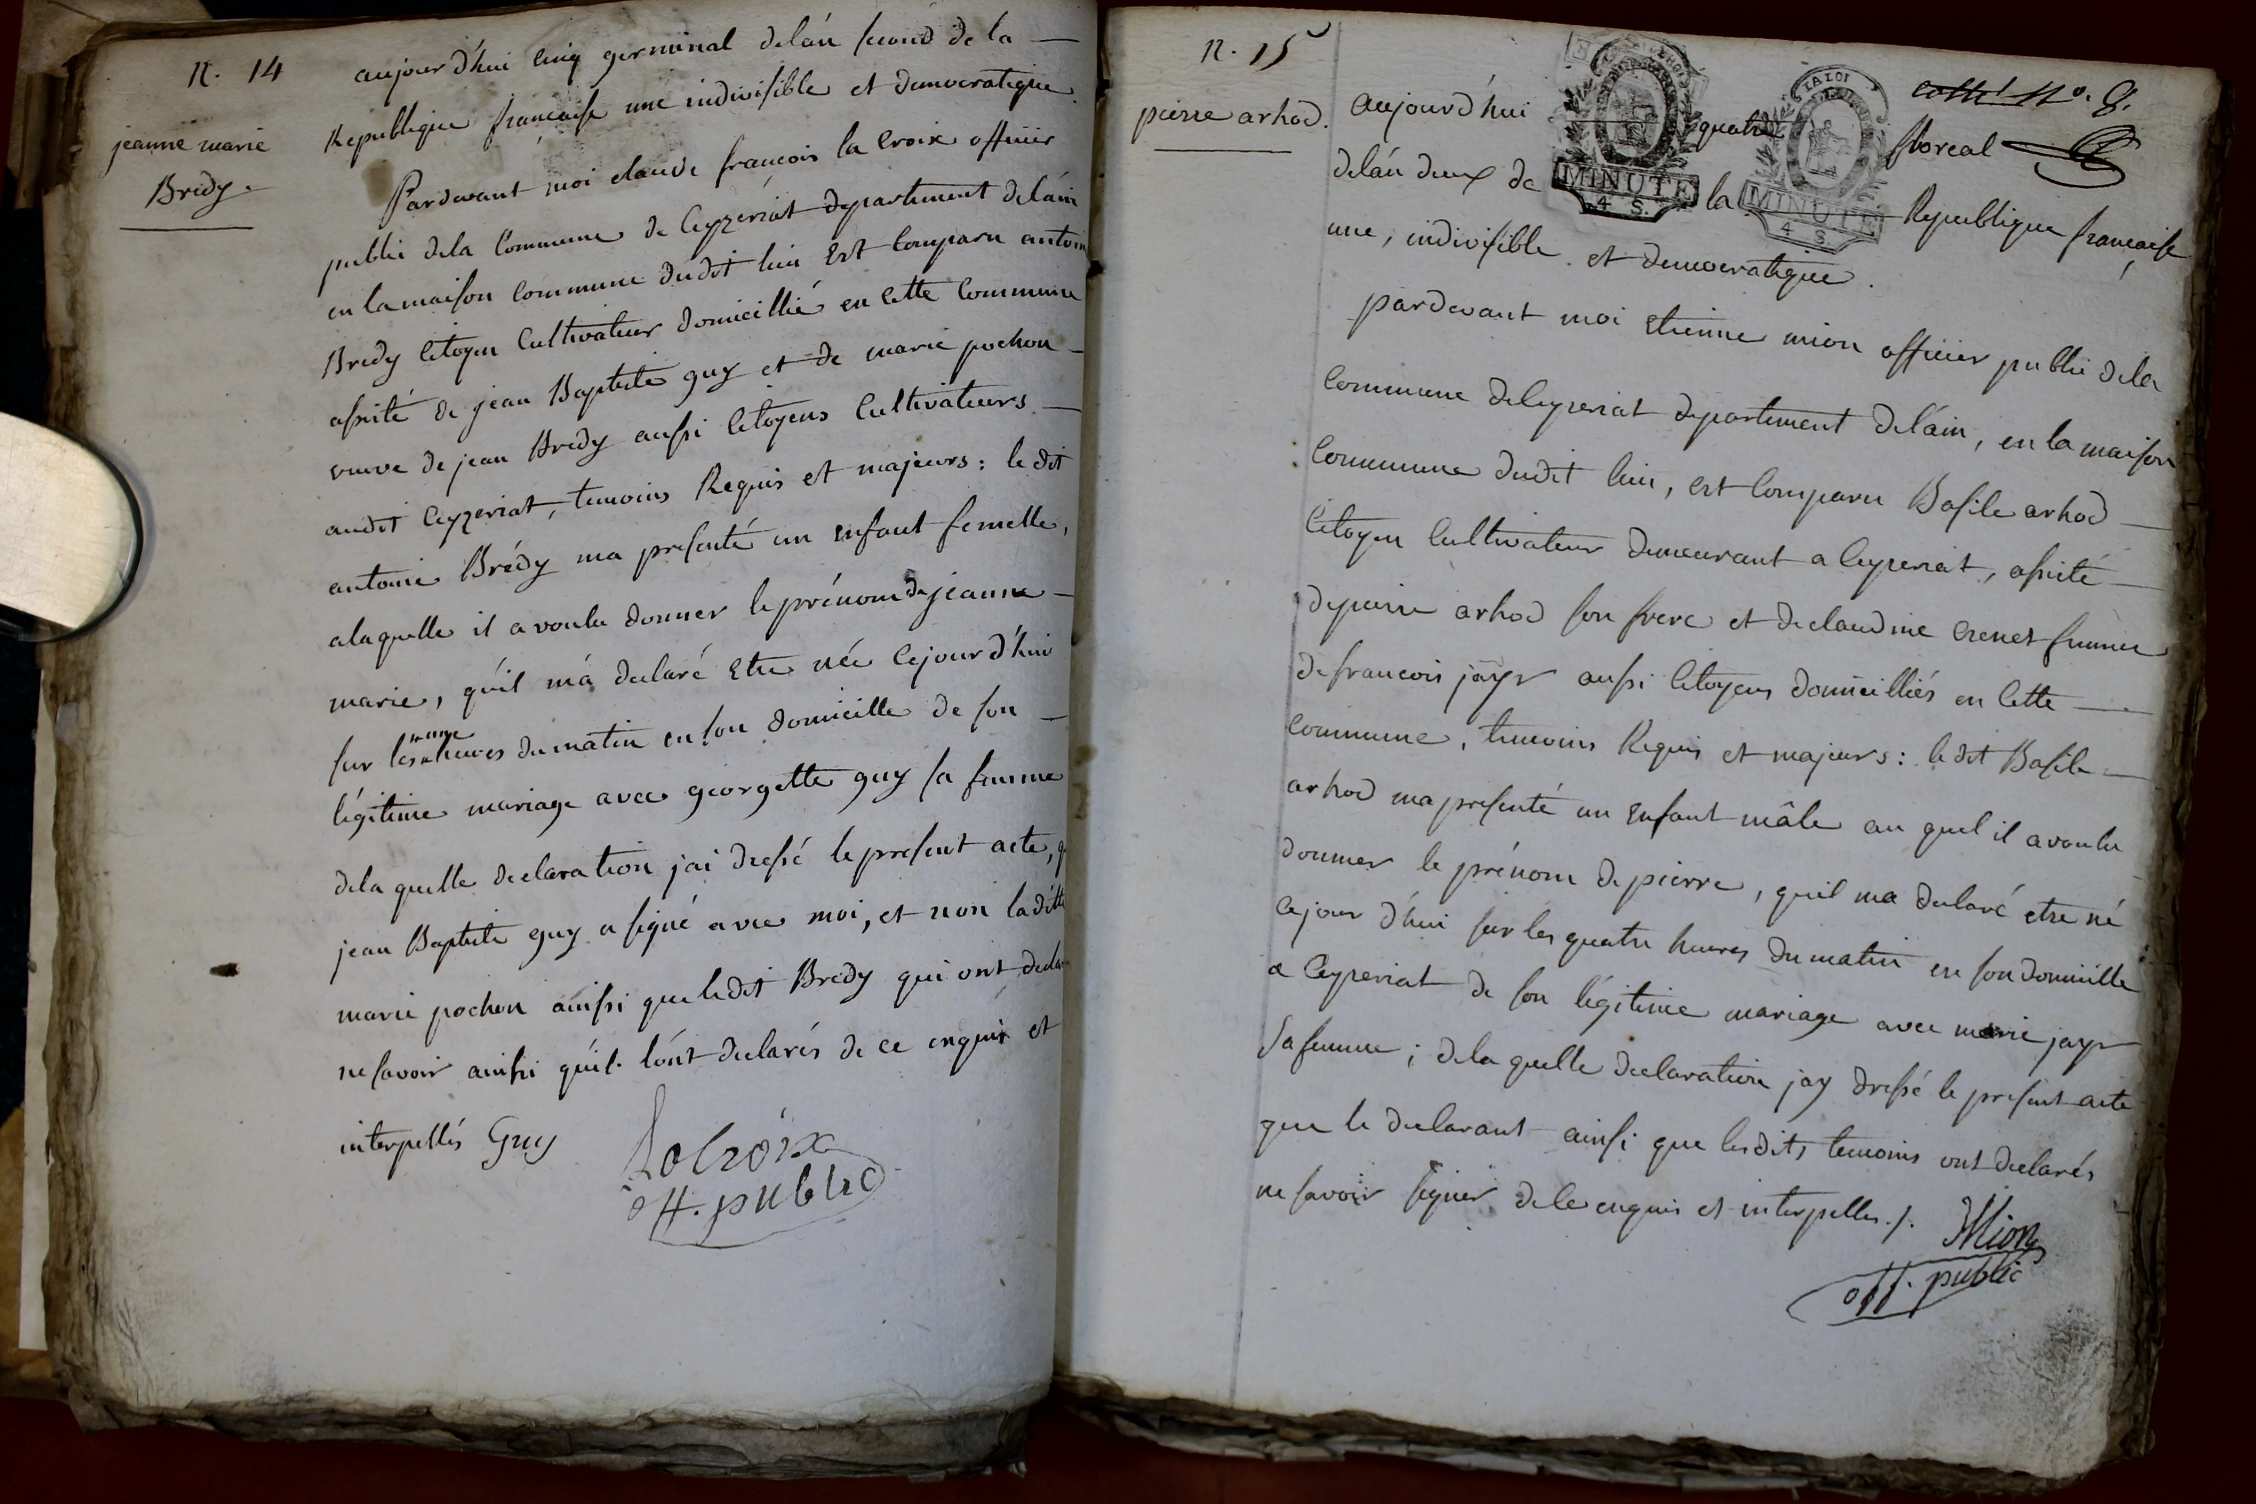 N. 14
jeanne marie
Brédy.
aujourd'hui cinq germinal delán second de la
Republique francaise une indivisible et democratique.
Pardevant moi claude francois la croix officier
public dela Commune de Ceyzeriat departement delain
en la maison Commune dudit lieu Est Comparu antoine
Brédy Citoyen Cultivateur domicillié en Cette Commune
assisté de jean Baptiste guy et de marie pochon
veuve de jean Brédy aussi Citoyens Cultivateurs
audit Ceyzeriat, temoins Requis et majeurs : le dit
antoine Brédy ma presenté un enfant femelle,
alaquelle il a voulu donner le prénom de jeanne
marie, qu'il m'a declaré Etre née Cejourd'hui
sur les onze heures du matin en son domicille de son
légitime mariage avec georgette guy sa femme
dela quelle declaration jai dressé le present acte, q
jean Baptiste guy a signé avec moi, et non la ditte
marie pochon ainsi que ledit Brédy qui ont decla
ne savoir ainsi qu'il l'ont declarés de ce enquis et
interpellés Guy
Lacroix
off. public
N. 15
pierre arhod.
cotté No. 8.
MINUTE
4 S.
LA LOI
MINUTE
4 S.
aujourd'hui quatre floreal
delán deux de la Republique francaise
une, indivisible et democratique.
pardevant moi Etienne mion officier public dela
Commune de Ceyzeriat departement delain, en la maison
Commune dudit lieu, est Comparu Basile arhod
Citoyen Cultivateur demeurant a Ceyzeriat, assisté
de pierre arhod son frere et de claudine Crenet femme
de francois jayr aussi Citoyens domicilliés en Cette
Commune, temoins Requis et majeurs : le dit Basile
arhod ma presenté un Enfant mâle au quel il a voulu
donner le prénom de pierre, quil ma declaré etre né
Cejour d'hui sur les quatre heures du matin en son domicille
a Ceyzeriat de son légitime mariage avec marie jayr
sa femme ; dela quelle declaration jay dressé le present acte
que le declarant ainsi que lesdits temoins ont declarés
ne savoir signer de Ce enquis et interpelles ./.
Mion
off. public